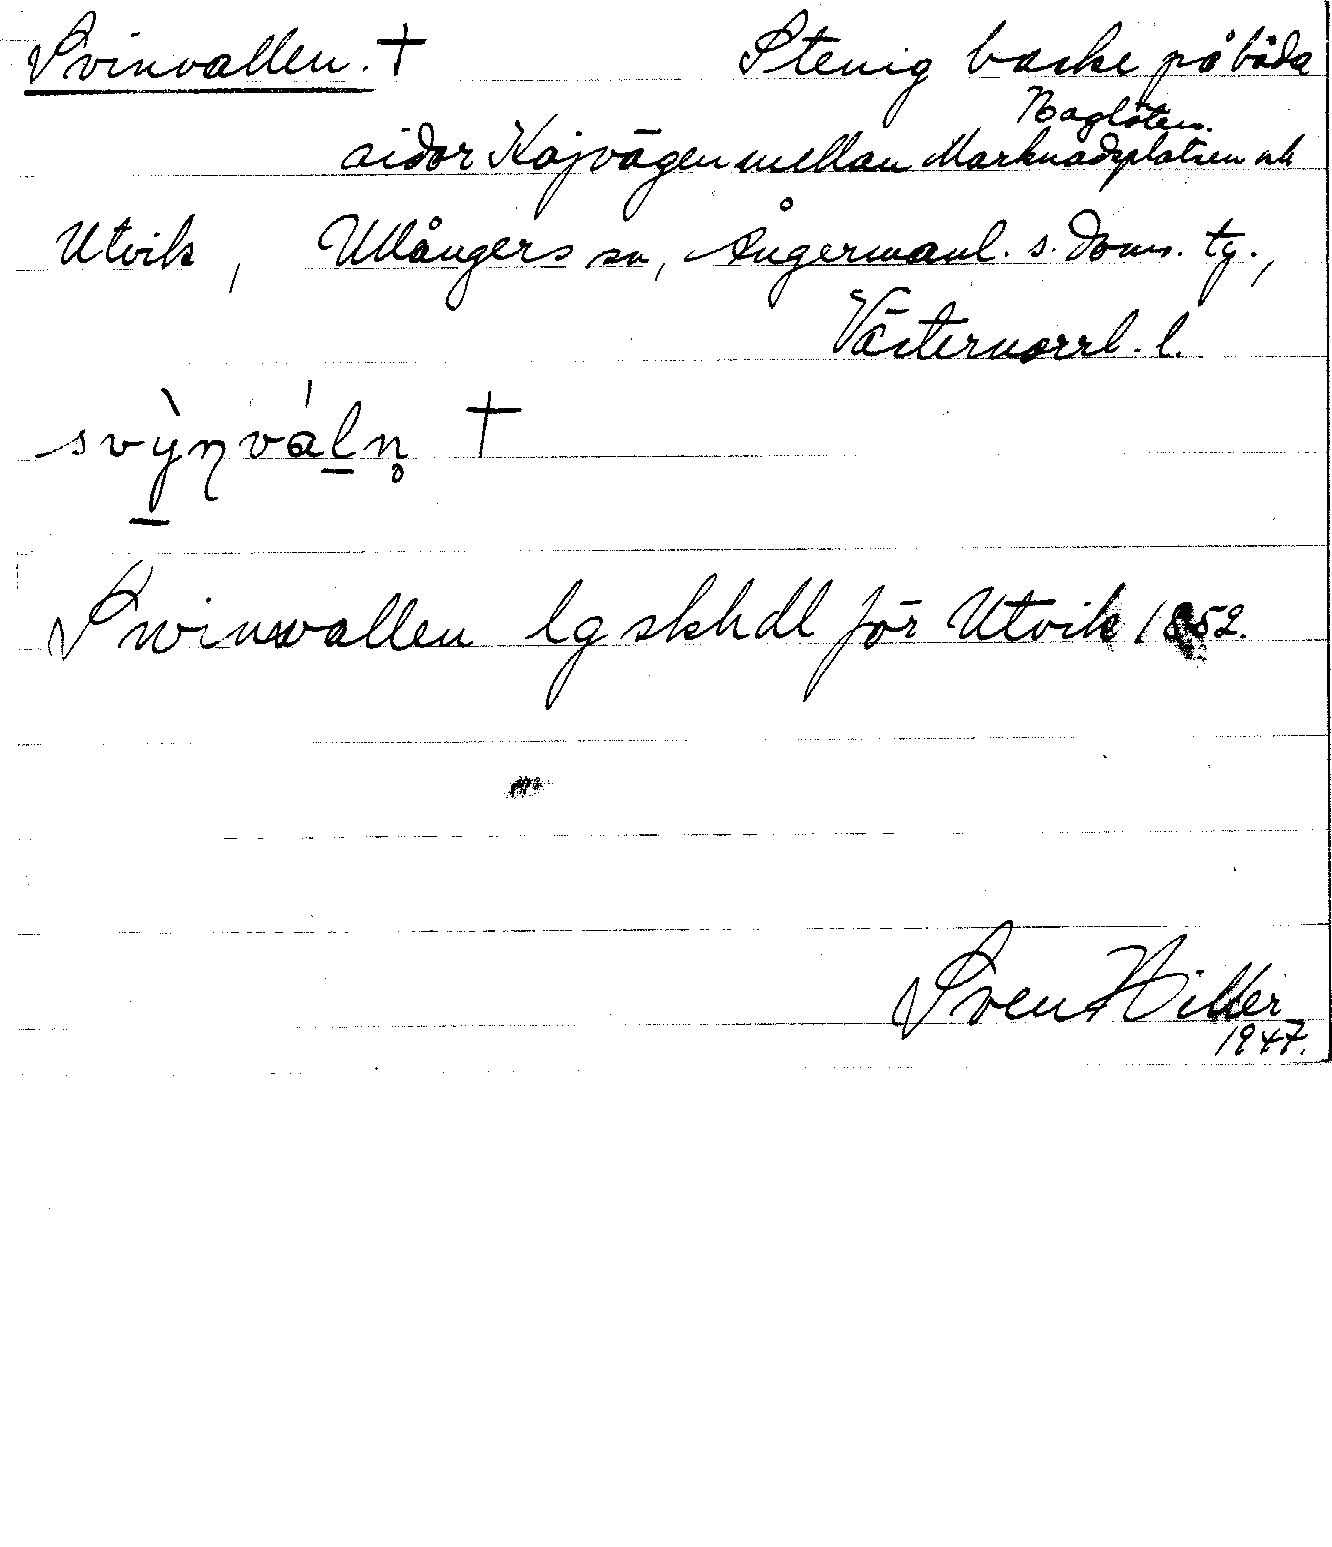 Svinvallen. † Stenig backe på båda
Naglöten.
sidor Kajvägen mellan Marknadsplatsen och
Utvik, Ullångers sn, Ångermanl. s. doms. tg.,
Västernorrl. l.
svỳŋváln̥ †
Swinwallen lgskhdl för Utvik 1852.
Sven Hiller
1947.